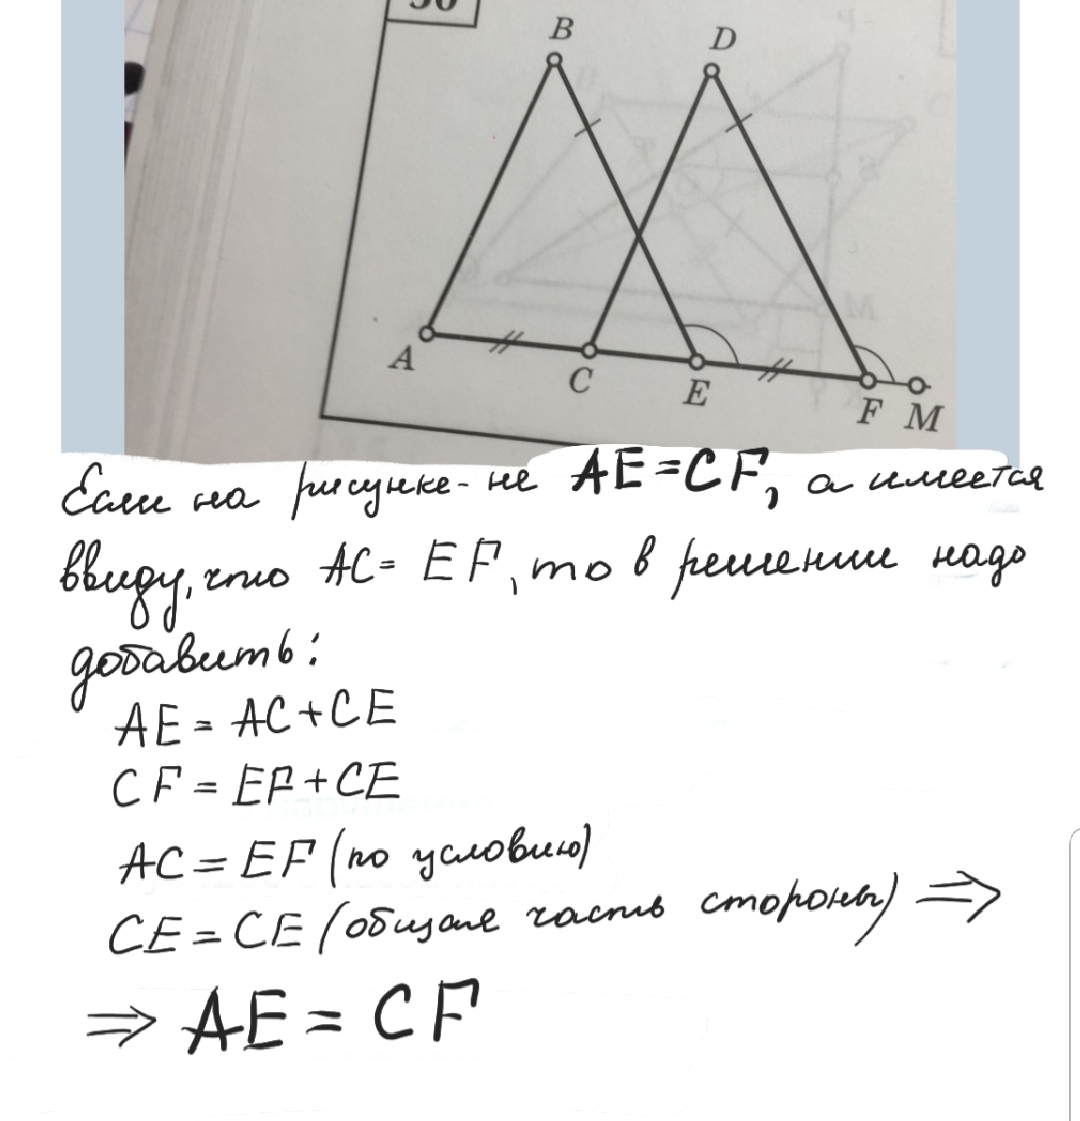 30
B
D
A
C
E
F M
Если на рисунке - не AE=CF, а имеется
ввиду, что AC= EF, то в решении надо
добавить:
AE = AC+CE
CF = EF+CE
AC = EF (по условию)
CE = CE (общая часть стороны) ⇒
⇒ AE = CF